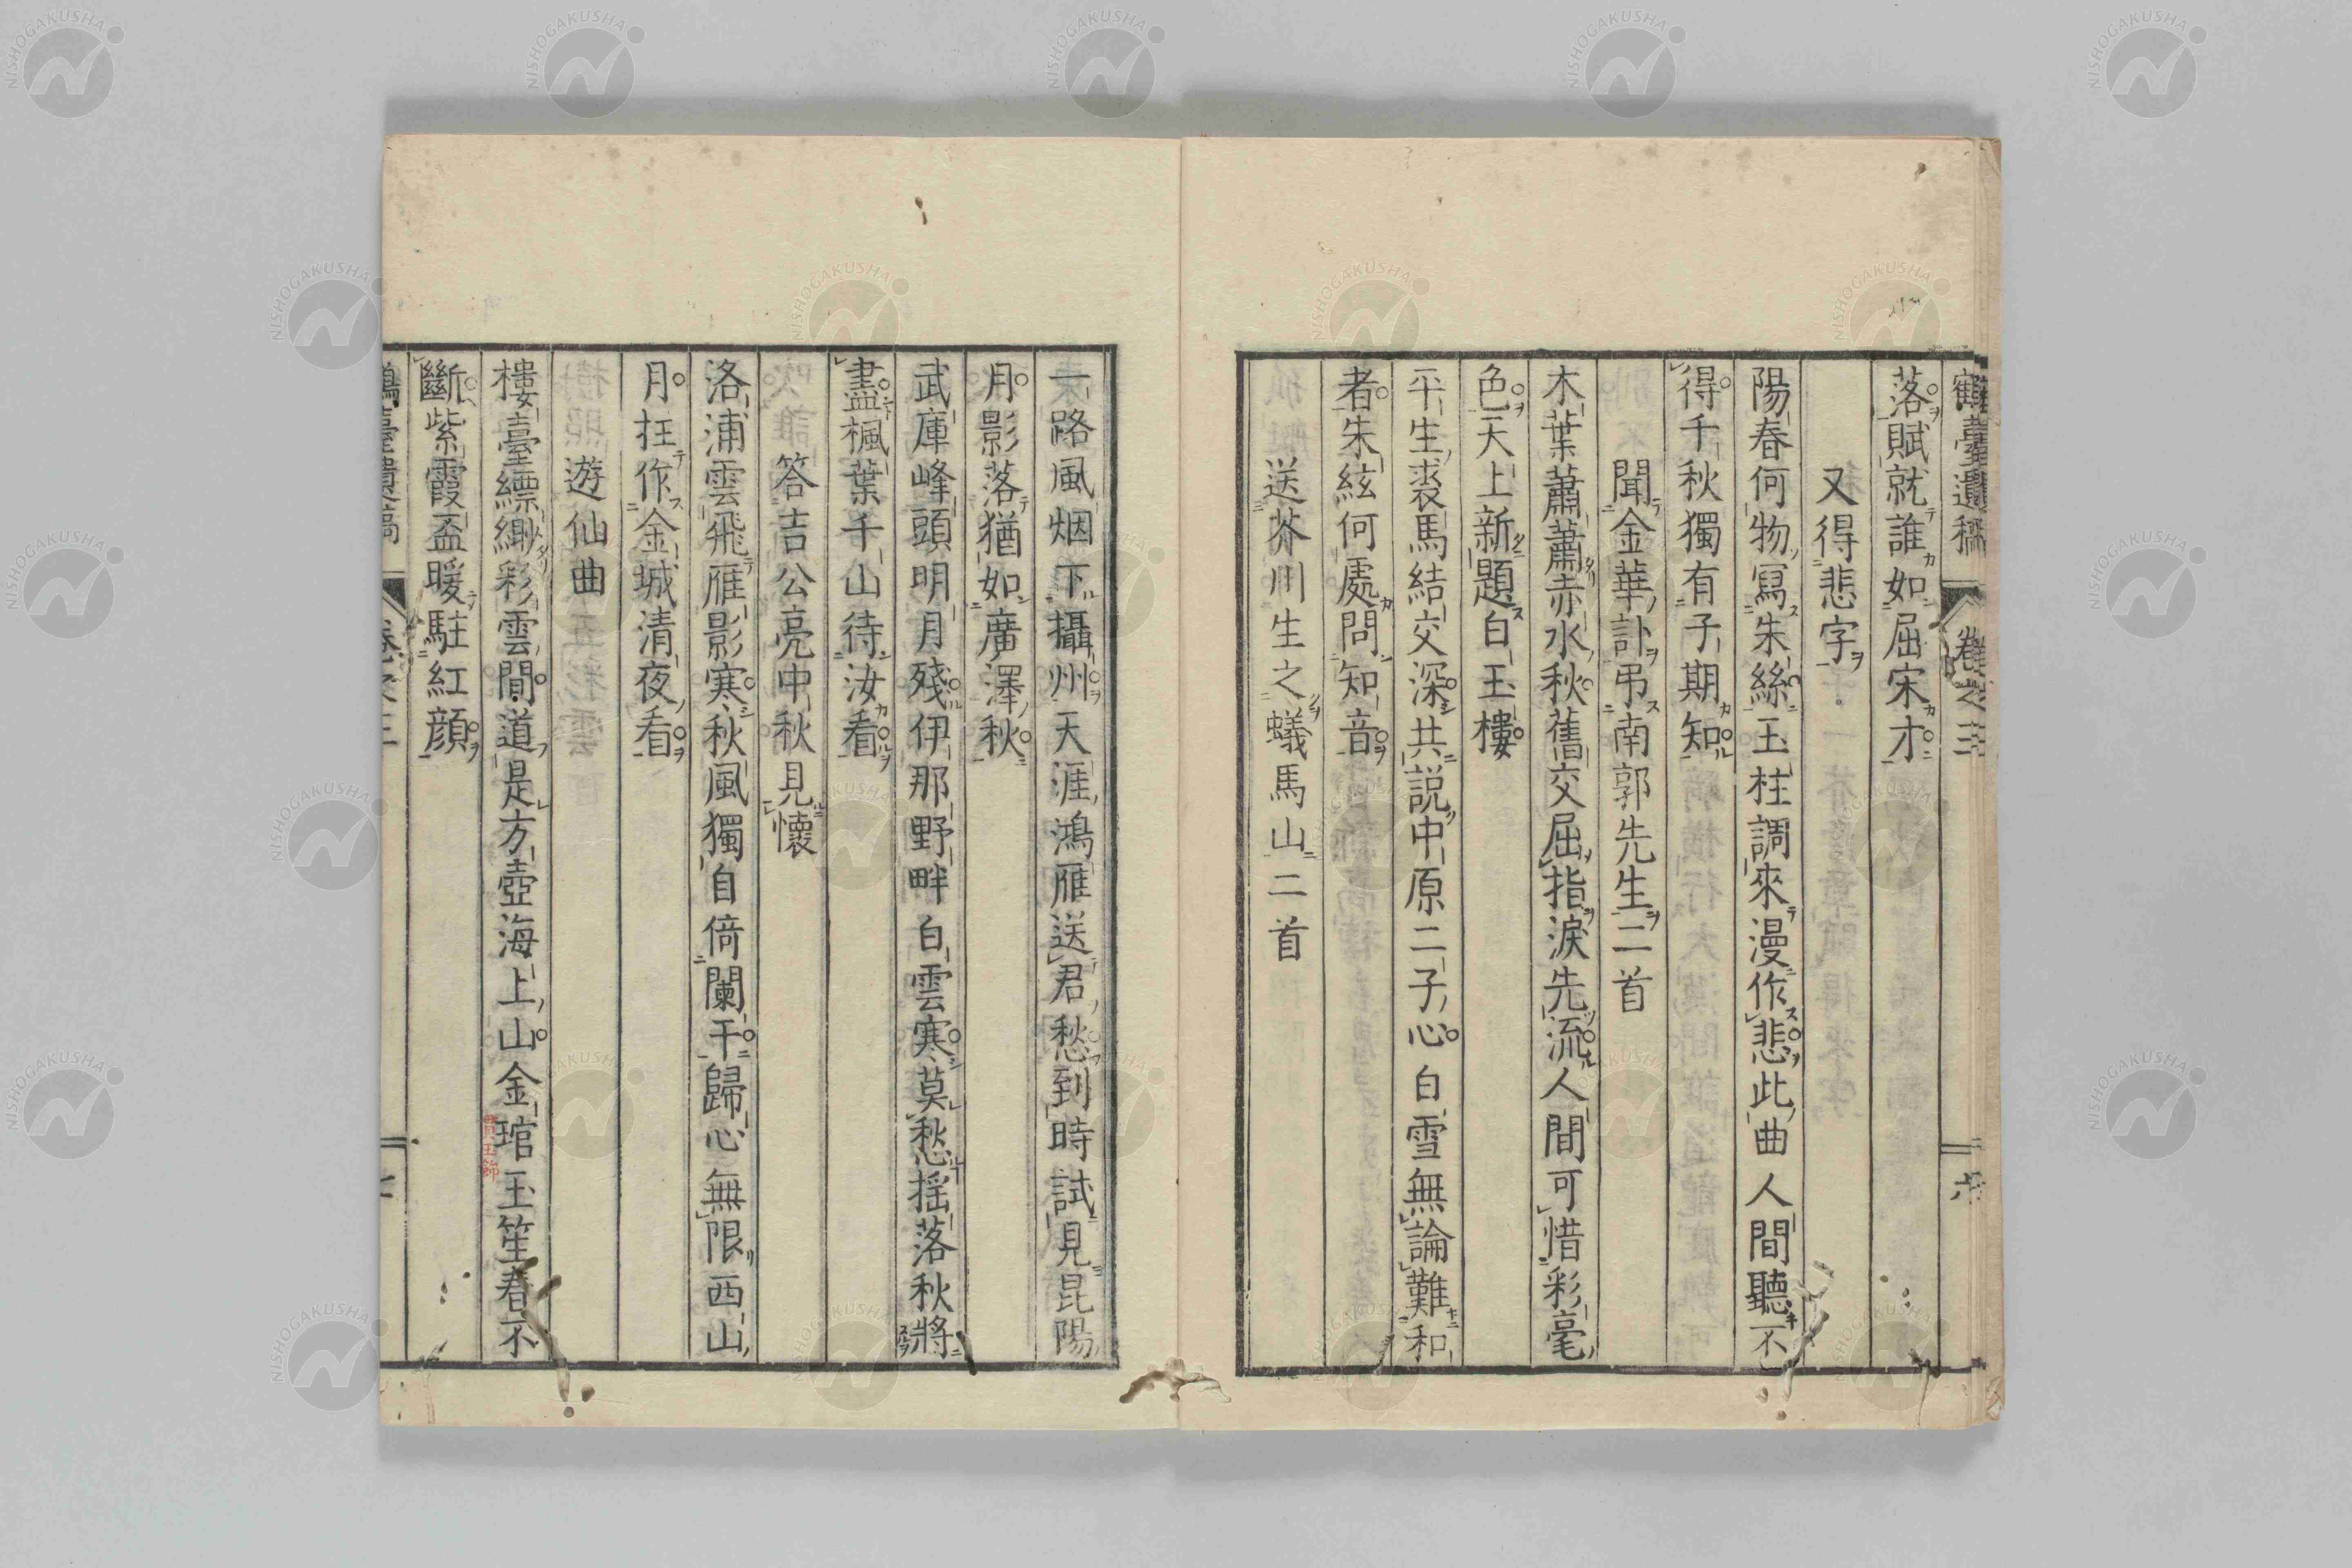 鶴臺遺稿 卷之三 六
落賦就誰如屈宋才
又得悲字
陽春何物寫朱絲玉柱調來漫作悲此曲人間聽不
得千秋獨有子期知
聞金華訃弔南郭先生二首
木葉蕭蕭赤水秋舊交屈指淚先流人間可惜彩毫
色天上新題白玉樓
平生裘馬結交深共說中原二子心白雪無論難和
者朱絃何處問知音
送芥川生之蟻馬山二首
一路風烟下攝州天涯鴻雁送君愁到時試見昆陽
月影落猶如廣澤秋
武庫峰頭明月殘伊那野畔白雲寒莫愁搖落秋將
盡楓葉千山待汝看
答吉公亮中秋見懷
洛浦雲飛雁影寒秋風獨自倚闌干歸心無限西山
月抂作金城清夜看
遊仙曲
樓臺縹緲彩雲間道是方壺海上山金琯玉笙春不
斷紫霞盃暖駐紅顔
鶴臺遺稿 卷之三
NISHOGAKUSHA